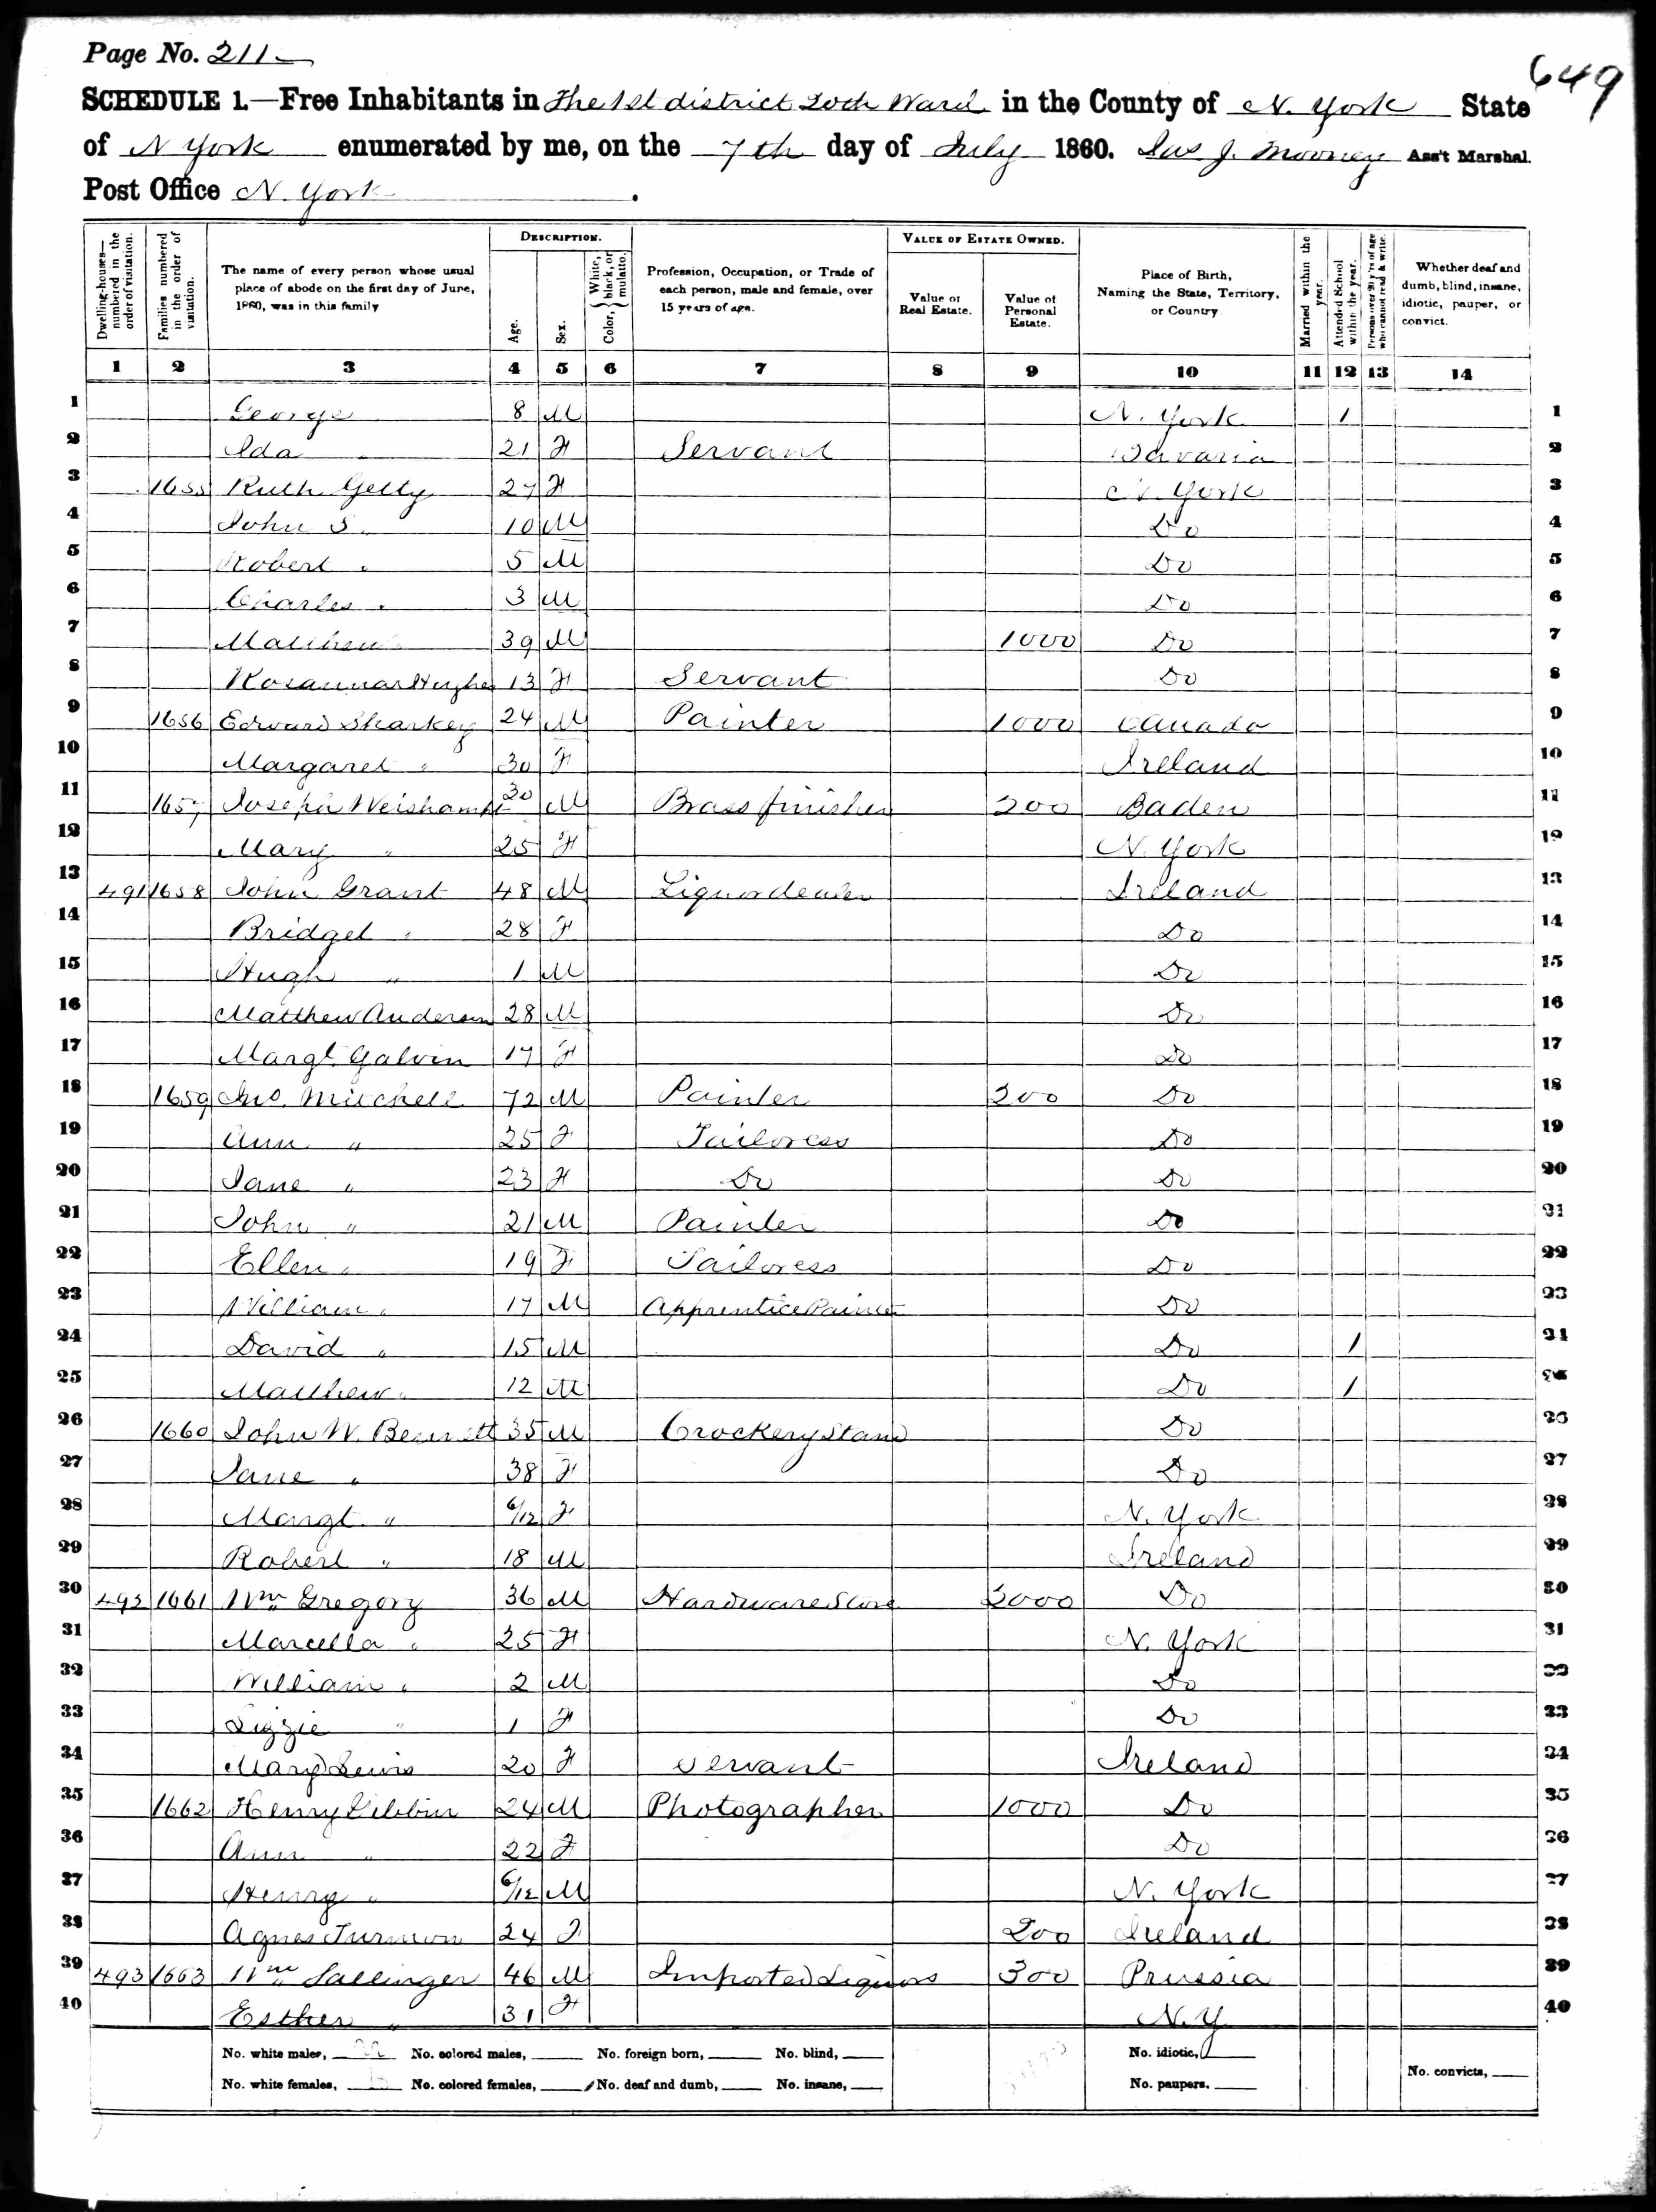 Page No. 211
649
SCHEDULE 1.—Free Inhabitants in The 1st district 20th Ward in the County of N. York State
of N York enumerated by me, on the 7th day of July 1860. Jas J. Mooney Ass't Marshal.
Post Office N. York.
Dwelling-houses—numbered in the order of visitation. Families numbered in the order of visitation. The name of every person whose usual place of abode on the first day of June, 1860, was in this family DESCRIPTION. Age. Sex. Color, { White, black, or mulatto. Profession, Occupation, or Trade of each person, male and female, over 15 years of age. VALUE OF ESTATE OWNED. Value of Real Estate. Value of Personal Estate. Place of Birth, Naming the State, Territory, or Country Married within the year. Attended School within the year. Persons over 20 y'rs of age who cannot read & write. Whether deaf and dumb, blind, insane, idiotic, pauper, or convict.
1 2 3 4 5 6 7 8 9 10 11 12 13 14
1 George 8 M N. York 1 1
2 Ida " 21 F Servant Bavaria 2
3 1655 Ruth Getty 27 F N. York 3
4 John S " 10 M Do 4
5 Robert " 5 M Do 5
6 Charles " 3 M Do 6
7 Matthew 39 M 1000 Do 7
8 Rosanna Hughes 13 F Servant Do 8
9 1656 Edward Sharkey 24 M Painter 1000 Canada 9
10 Margaret " 30 F Ireland 10
11 1657 Joseph 30 M Brass finisher 200 Baden 11
12 Mary " 25 F N. York 12
13 491 1658 John Grant 48 M Liquor dealer Ireland 13
14 Bridget " 28 F Do 14
15 Hugh " 1 M Do 15
16 Matthew Anderson 28 M Do 16
17 Margt Galvin 17 F Do 17
18 1659 Jno. Mitchell 72 M Painter 200 Do 18
19 Ann " 25 F Tailoress Do 19
20 Jane " 23 F Do Do 20
21 John " 21 M Painter Do 21
22 Ellen " 19 F Tailoress Do 22
23 William " 17 M Apprentice Painter Do 23
24 David " 15 M Do 1 24
25 Matthew " 12 M Do 1 25
26 1660 John W. Bennett 35 M Crockery Stand Do 26
27 Jane " 38 F Do 27
28 Margt. " 6/12 F N. York 28
29 Robert " 18 M Ireland 29
30 492 1661 Wm Gregory 36 M Hardware Store 2000 Do 30
31 Marcella " 25 F N. York 31
32 William " 2 M Do 32
33 Lizzie " 1 F Do 33
34 Mary Lewis 20 F Servant Ireland 34
35 1662 Henry Gibbin 24 M Photographer 1000 Do 35
36 Ann " 22 F Do 36
37 Henry " 6/12 M N. York 37
38 Agnes 24 F 200 Ireland 38
39 493 1663 Wm Sallinger 46 M Imported Liquors 300 Prussia 39
40 Esther " 31 F N.Y 40
No. white males, 22 No. colored males, No. foreign born, No. blind, No. idiotic,
No. white females, No. colored females, No. deaf and dumb, No. insane, No. paupers, No. convicts,